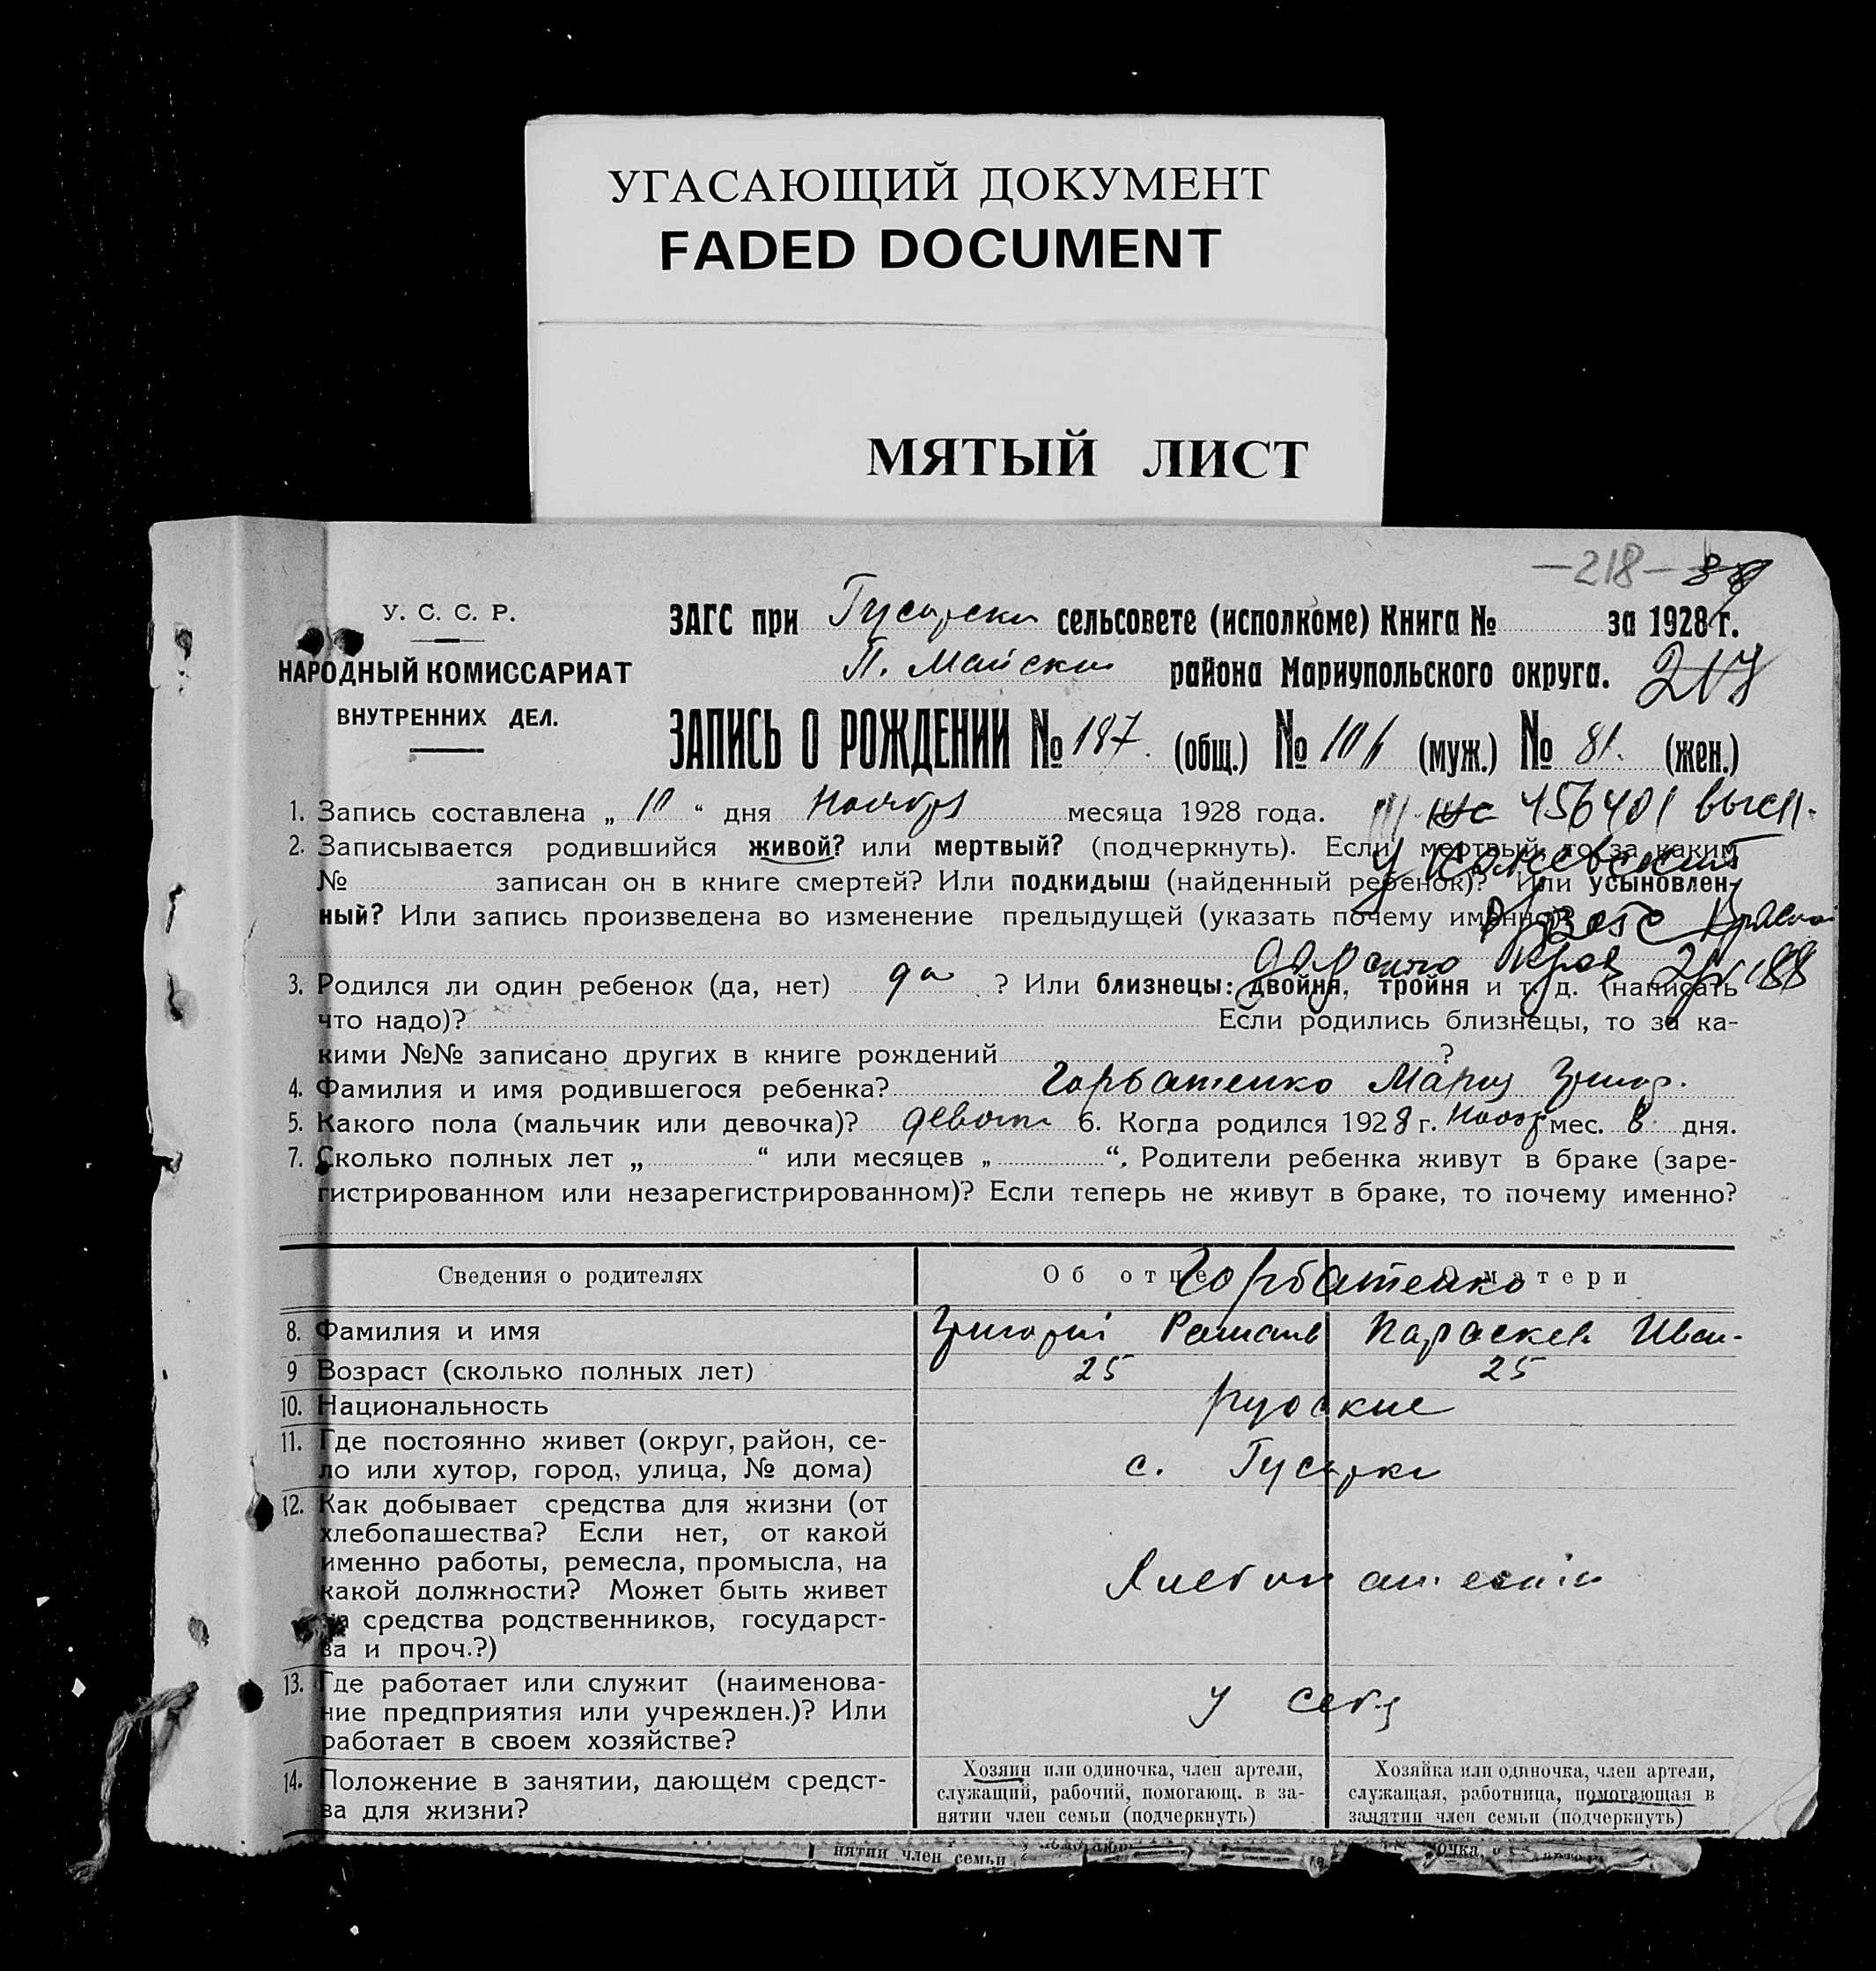 УГАСАЮЩИЙ ДОКУМЕНТ
FADED DOCUMENT
МЯТЫЙ ЛИСТ
—218—
У. С. С. Р.
НАРОДНЫЙ КОМИССАРИАТ
ВНУТРЕННИХ ДЕЛ.
ЗАГС при Гусарски сельсовете (исполкоме) Книга № за 1928 г.
П. Майски района Мариупольского округа. 217
ЗАПИСЬ О РОЖДЕНИИ № 187. (общ.) № 106 (муж.) № 81. (жен.)
1. Запись составлена „ 10 “ дня Ноября месяца 1928 года.
456401 высл.
2. Записывается родившийся живой? или мертвый? (подчеркнуть). Если мертвый, то за каким
№ записан он в книге смертей? Или подкидыш (найденный ребенок)? Или усыновлен-
ный? Или запись произведена во изменение предыдущей (указать почему именно)?
3. Родился ли один ребенок (да, нет) да ? Или близнецы: двойня, тройня и т. д. (написать
что надо)? Если родились близнецы, то за ка-
кими №№ записано других в книге рождений ?
4. Фамилия и имя родившегося ребенка? Горбатенко Мария Григор.
5. Какого пола (мальчик или девочка)? девочка 6. Когда родился 1928 г. Ноябр мес. 8 дня.
7. Сколько полных лет „ “ или месяцев „ “. Родители ребенка живут в браке (заре-
гистрированном или незарегистрированном)? Если теперь не живут в браке, то почему именно?
Сведения о родителях Об отце О матери
Горбатенко
8. Фамилия и имя Григорий Параскев Иван-
9 Возраст (сколько полных лет) 25 25
10. Национальность русские
11. Где постоянно живет (округ, район, се-
ло или хутор, город, улица, № дома) с. Гусарка
12. Как добывает средства для жизни (от
хлебопашества? Если нет, от какой
именно работы, ремесла, промысла, на
какой должности? Может быть живет
на средства родственников, государст-
ва и проч.?)
13. Где работает или служит (наименова-
ние предприятия или учрежден.)? Или
работает в своем хозяйстве?
у себя
14. Положение в занятии, дающем средст-
ва для жизни?
Хозяин или одиночка, член артели,
служащий, рабочий, помогающ. в за-
нятии член семьи (подчеркнуть)
Хозяйка или одиночка, член артели,
служащая, работница, помогающая в
занятии член семьи (подчеркнуть)
нятии член семьи